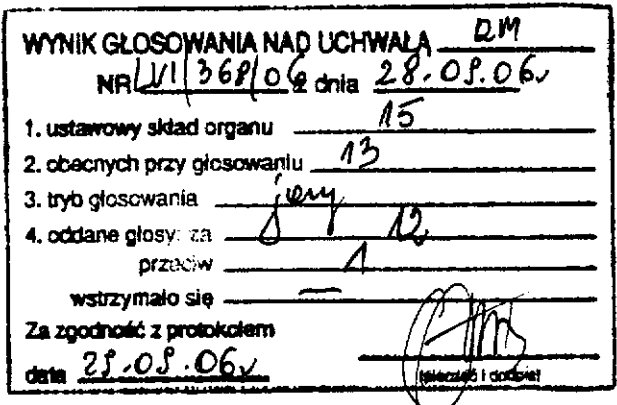 WYNIK GŁOSOWANIA NAD UCHWAŁĄ RM
NR LVI/368/06 z dnia 28.09.06r
1. ustawowy skład organu 15
2. obecnych przy głosowaniu 13
3. tryb głosowania jawny
4. oddane głosy: za 12
przeciw 1
wstrzymało się —
Za zgodność z protokołem
data 29.09.06r
(pieczęć i podpis)